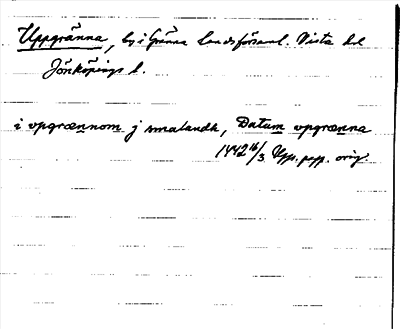 Uppgränna, by i Gränna landsförsaml. Vista hd
Jönköpings l.
i vpgrænnom j smalandh, Datum vpgrænna
1442 16/3 Upps. papp. orig.